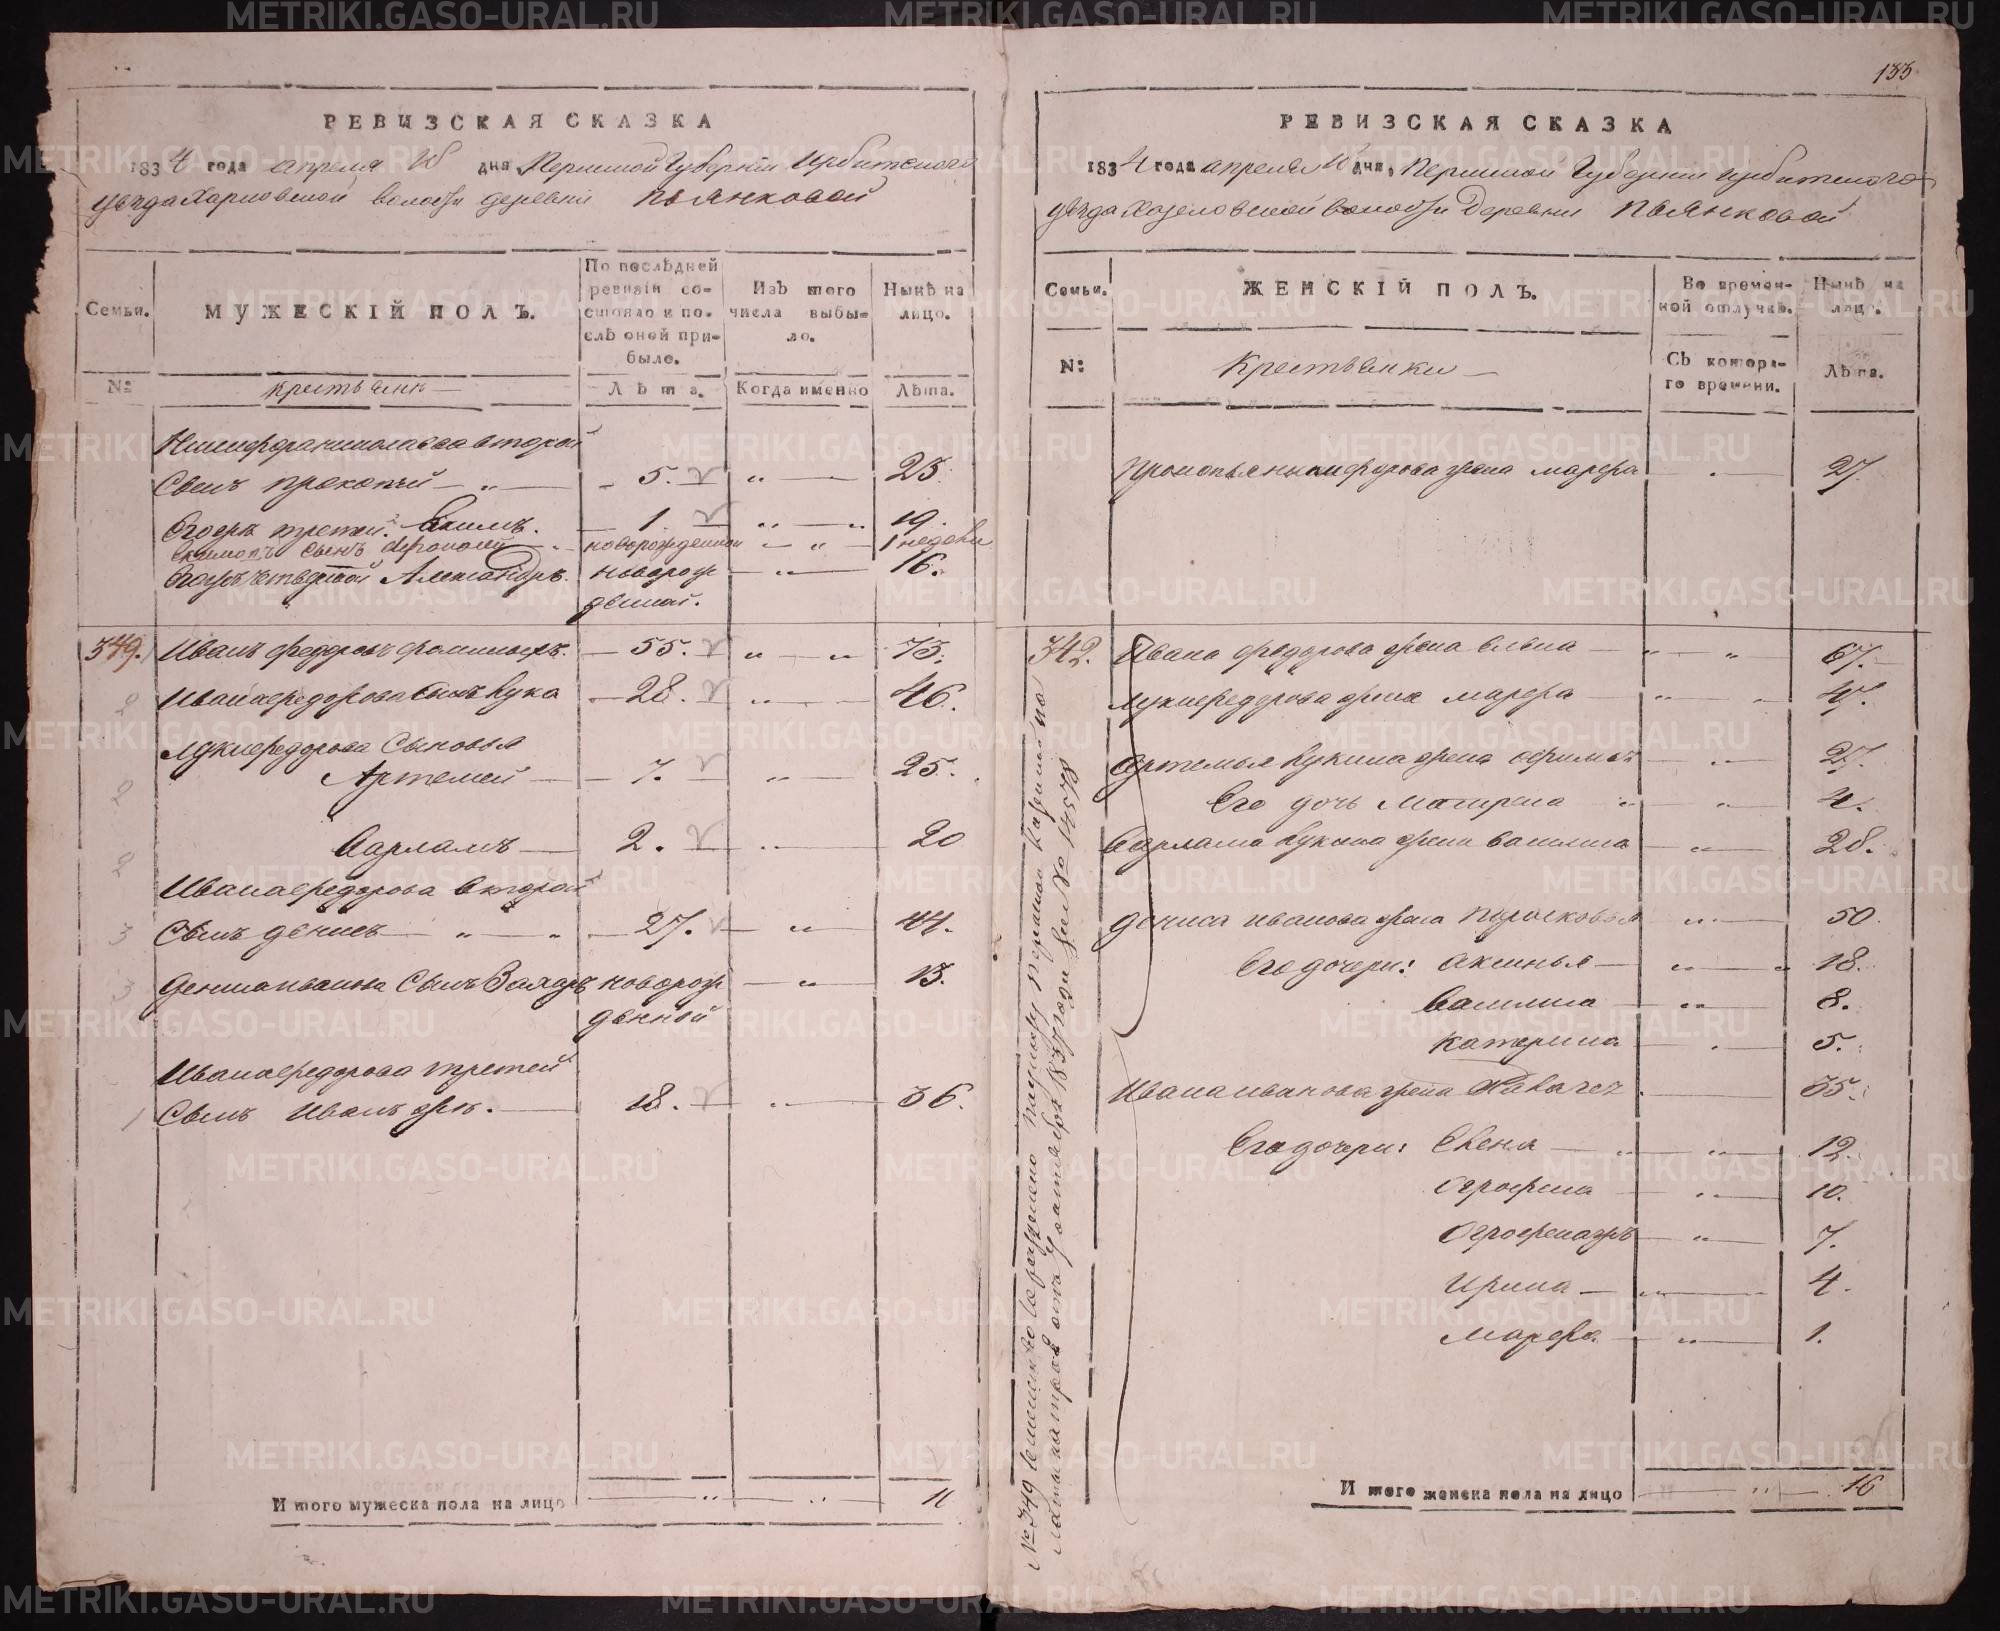 РЕВИЗСКАЯ СКАЗКА
1834 года апреля дня, Пермской Губернiи Ирбитского
уезда Харловской волости деревни Пьянковой
Семьи.
МУЖЕСКІЙ ПОЛЪ.
По послѣдней ревизіи состояло и послѣ оной прибыло.
Изъ того числа выбыло.
Нынѣ на лицо.
№
крестьяне
Лѣта.
Когда именно
Лѣта.
Никифора Николаева второй
Сынъ Прокопей — „ — 5. „ — 23.
Егоже третей Екимъ. — 1. — „ — „ 19.
сынъ новорожденной — „ — 1 недели
Егожъ четвертой Александръ. новорож — „ — 16.
денной.
349. Иванъ Федоровъ — 55. „ — „ 73.
2 Ивана Федорова сынъ Лука — 28. — „ — 46.
Луки Федорова Сыновья
2 Артемей — 7. — „ — 25.
2 Варламъ — 2. — „ — 20
Ивана Федорова второй
3 Сынъ Денисъ — „ — „ — 27. — „ — 44.
3 Дениса Иванова Сынъ Захаръ новорож — „ — 13.
денной
Ивана Федорова третей
1 Сынъ Иванъ же. — 18. — „ — 36.
И того мужеска пола на лицо — „ — „ 11
133
РЕВИЗСКАЯ СКАЗКА
1834 года апреля дня, Пермской Губернiи Ирбитского
уезда Харловской волости деревни Пьянковой
Семьи.
ЖЕНСКІЙ ПОЛЪ.
Во временной отлучкѣ.
Нынѣ на лицо.
№:
Крестьянки —
Съ котораго времени.
Лѣта.
Прокопья Никифорова жена Марфа — „ — 27.
342. Ивана Федорова жена Елена — „ — „ 67.
Луки Федорова жена Марфа — „ — „ 47.
Артемья Лукина жена Офимья — „ — 27.
Его дочь Матрена „ „ 4.
Варлама Лукина жена Василиса — „ — 28.
Дениса Иванова жена Парасковья „ — 50.
Его дочери: Аксинья — „ — „ 18.
Василиса — „ — 8.
Катерина — „ — 5.
Ивана Иванова жена — 35.
Его дочери: Елена — „ — „ — 12.
Огрофена — „ — 10.
Огрофенажъ — „ — 7.
Ирина — „ — 4.
Марфа — „ — 1.
И того женска пола на лицо — „ — 16
№ 349 семейство разделено по указу Пермской Казенной па
латы на трое отъ 4 октября 1837 года за № 14578
METRIKI.GASO-URAL.RU